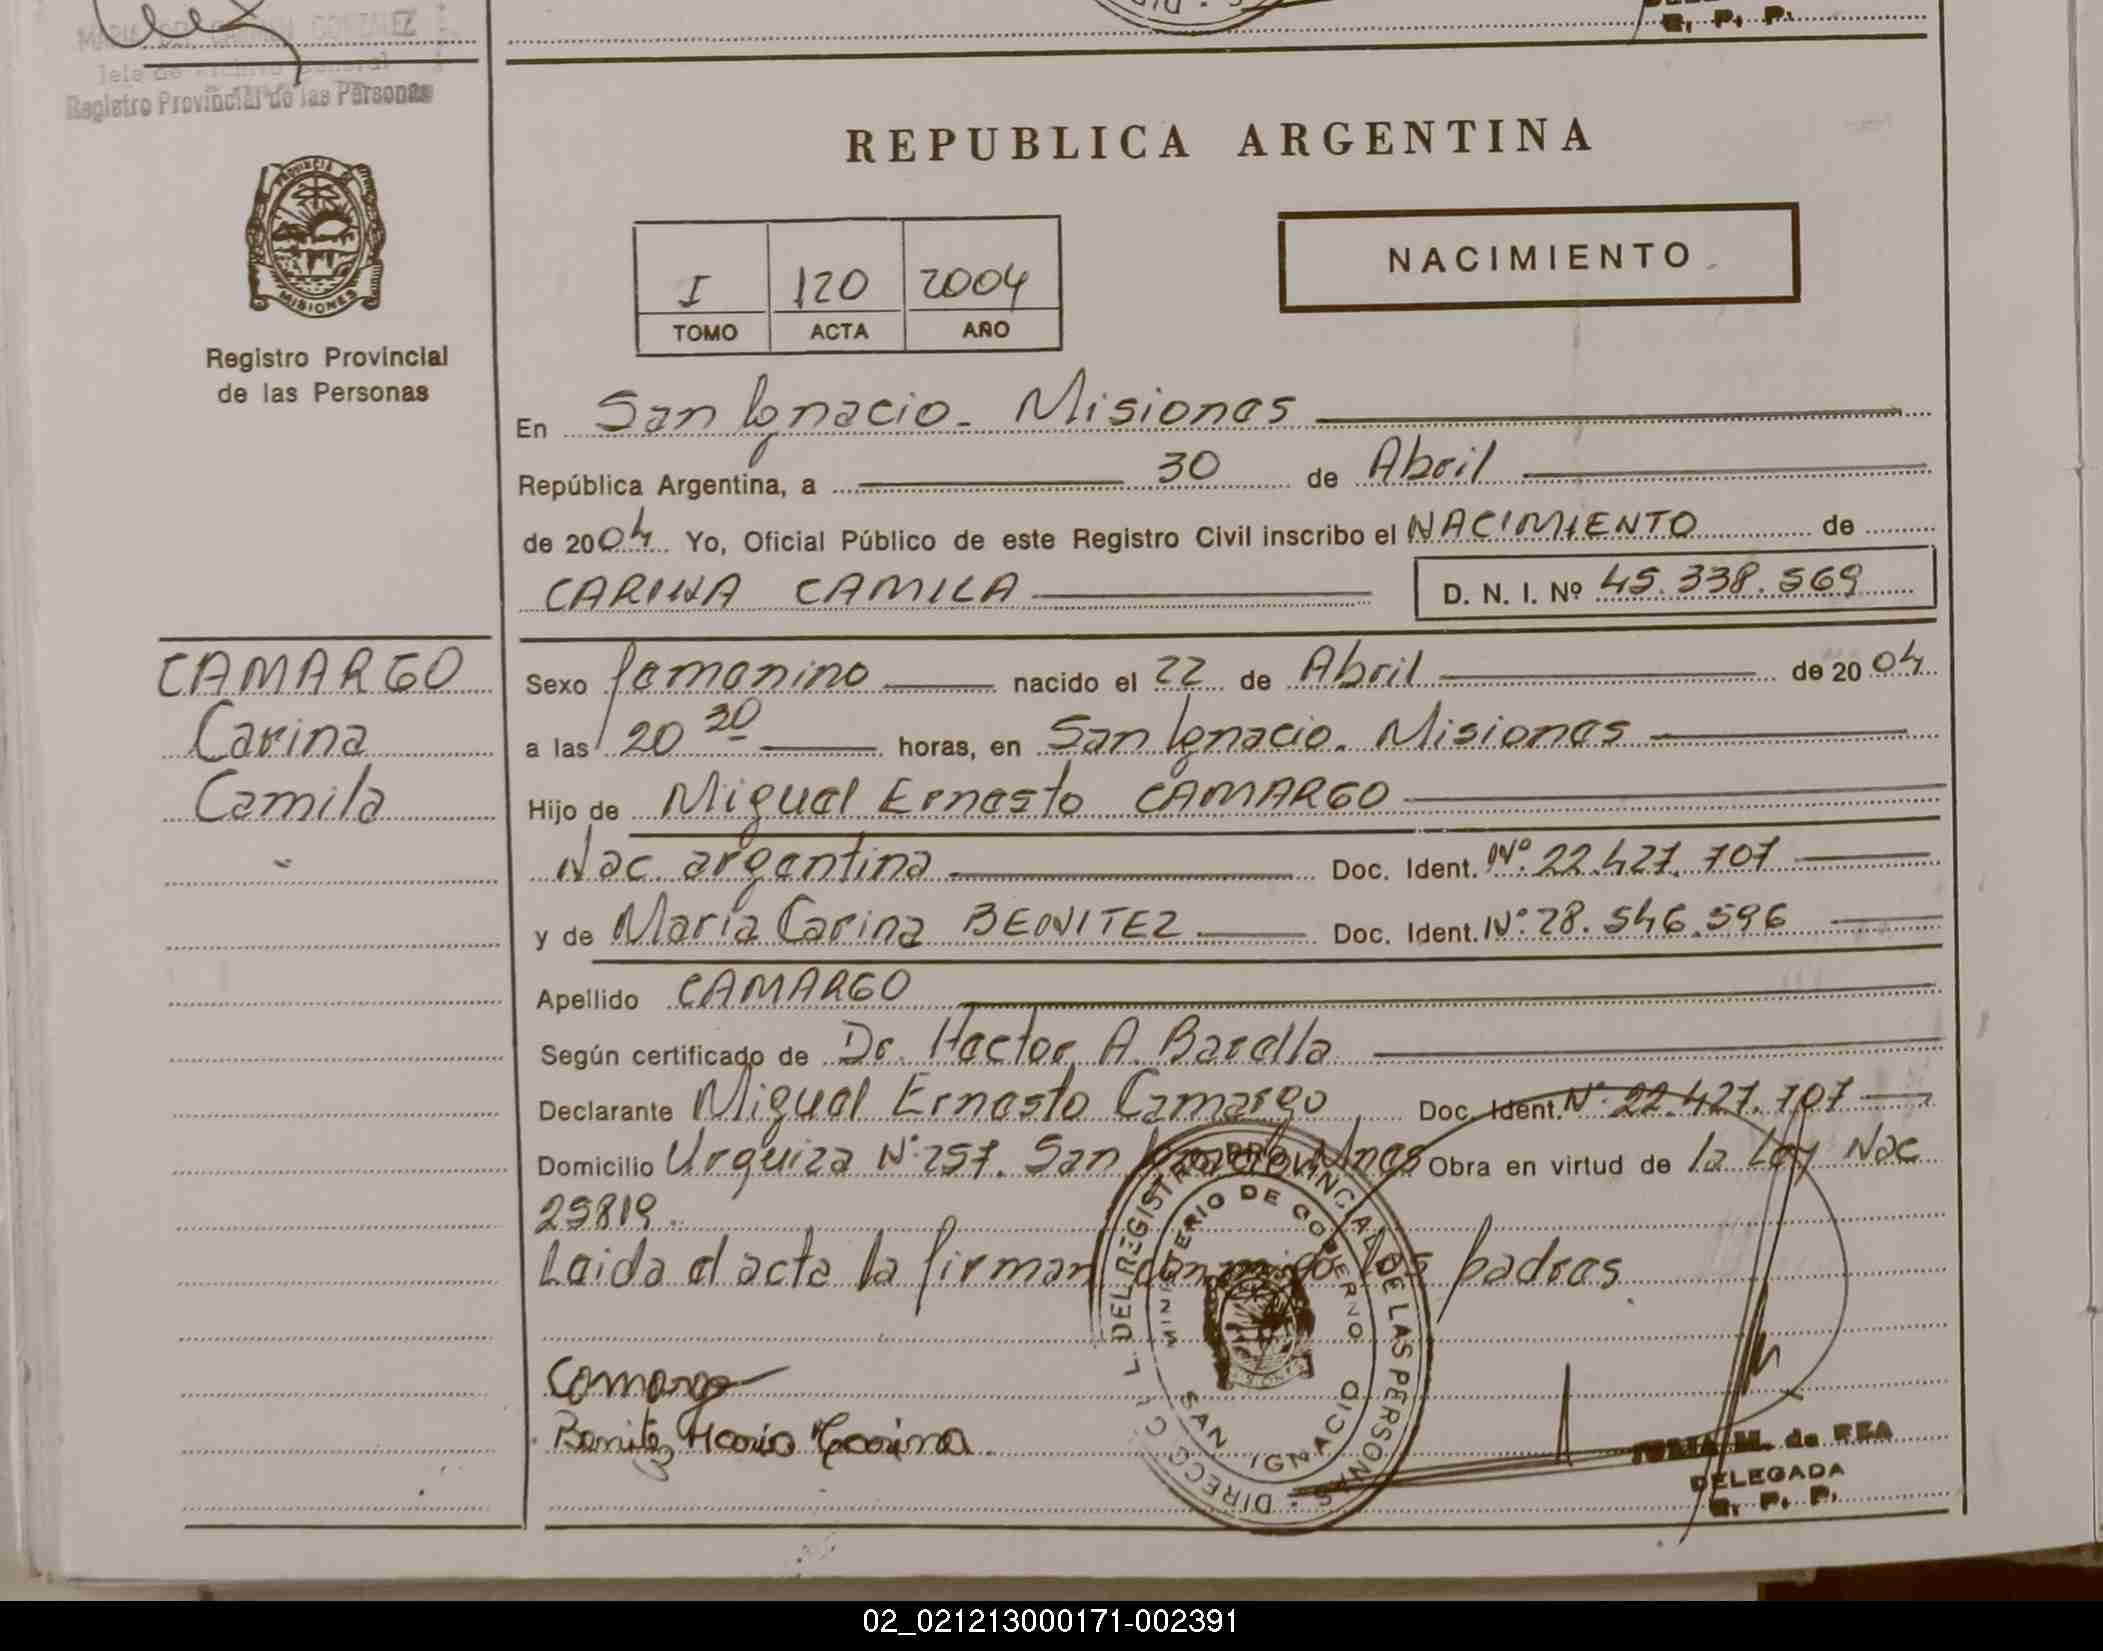 R. P. P.
Registro Provincial de las Personas
REPUBLICA ARGENTINA
PROVINCIA DE
MISIONES
Registro Provincial
de las Personas
I 120 2004
TOMO ACTA AÑO
NACIMIENTO
En San Ignacio - Misiones
República Argentina, a 30 de Abril
de 2004 Yo, Oficial Público de este Registro Civil inscribo el NACIMIENTO de
CARINA CAMILA D. N. I. Nº 45.338.569
CAMARGO
Carina
Camila
Sexo femenino nacido el 22 de Abril de 2004
a las 20 30 horas, en San Ignacio. Misiones
Hijo de Miguel Ernesto CAMARGO
Nac. argentina Doc. Ident. Nº 22.427.707
y de María Carina BENITEZ Doc. Ident. Nº 28.546.596
Apellido CAMARGO
Según certificado de Dr. Hector A. Barella
Declarante Miguel Ernesto Camargo Doc. Ident. Nº 22.427.707
Domicilio Urquiza Nº 257. San Ignacio Mnes Obra en virtud de la Ley Nac
25819.
Leida el acta la firman conmigo los padres.
Camargo
Benitez Maria Carina
DIRECC. GRAL. DEL REGISTRO PROVINCIAL DE LAS PERSONAS
MINISTERIO DE GOBIERNO
SAN IGNACIO
M. de REA
DELEGADA
R. P. P.
02_021213000171-002391